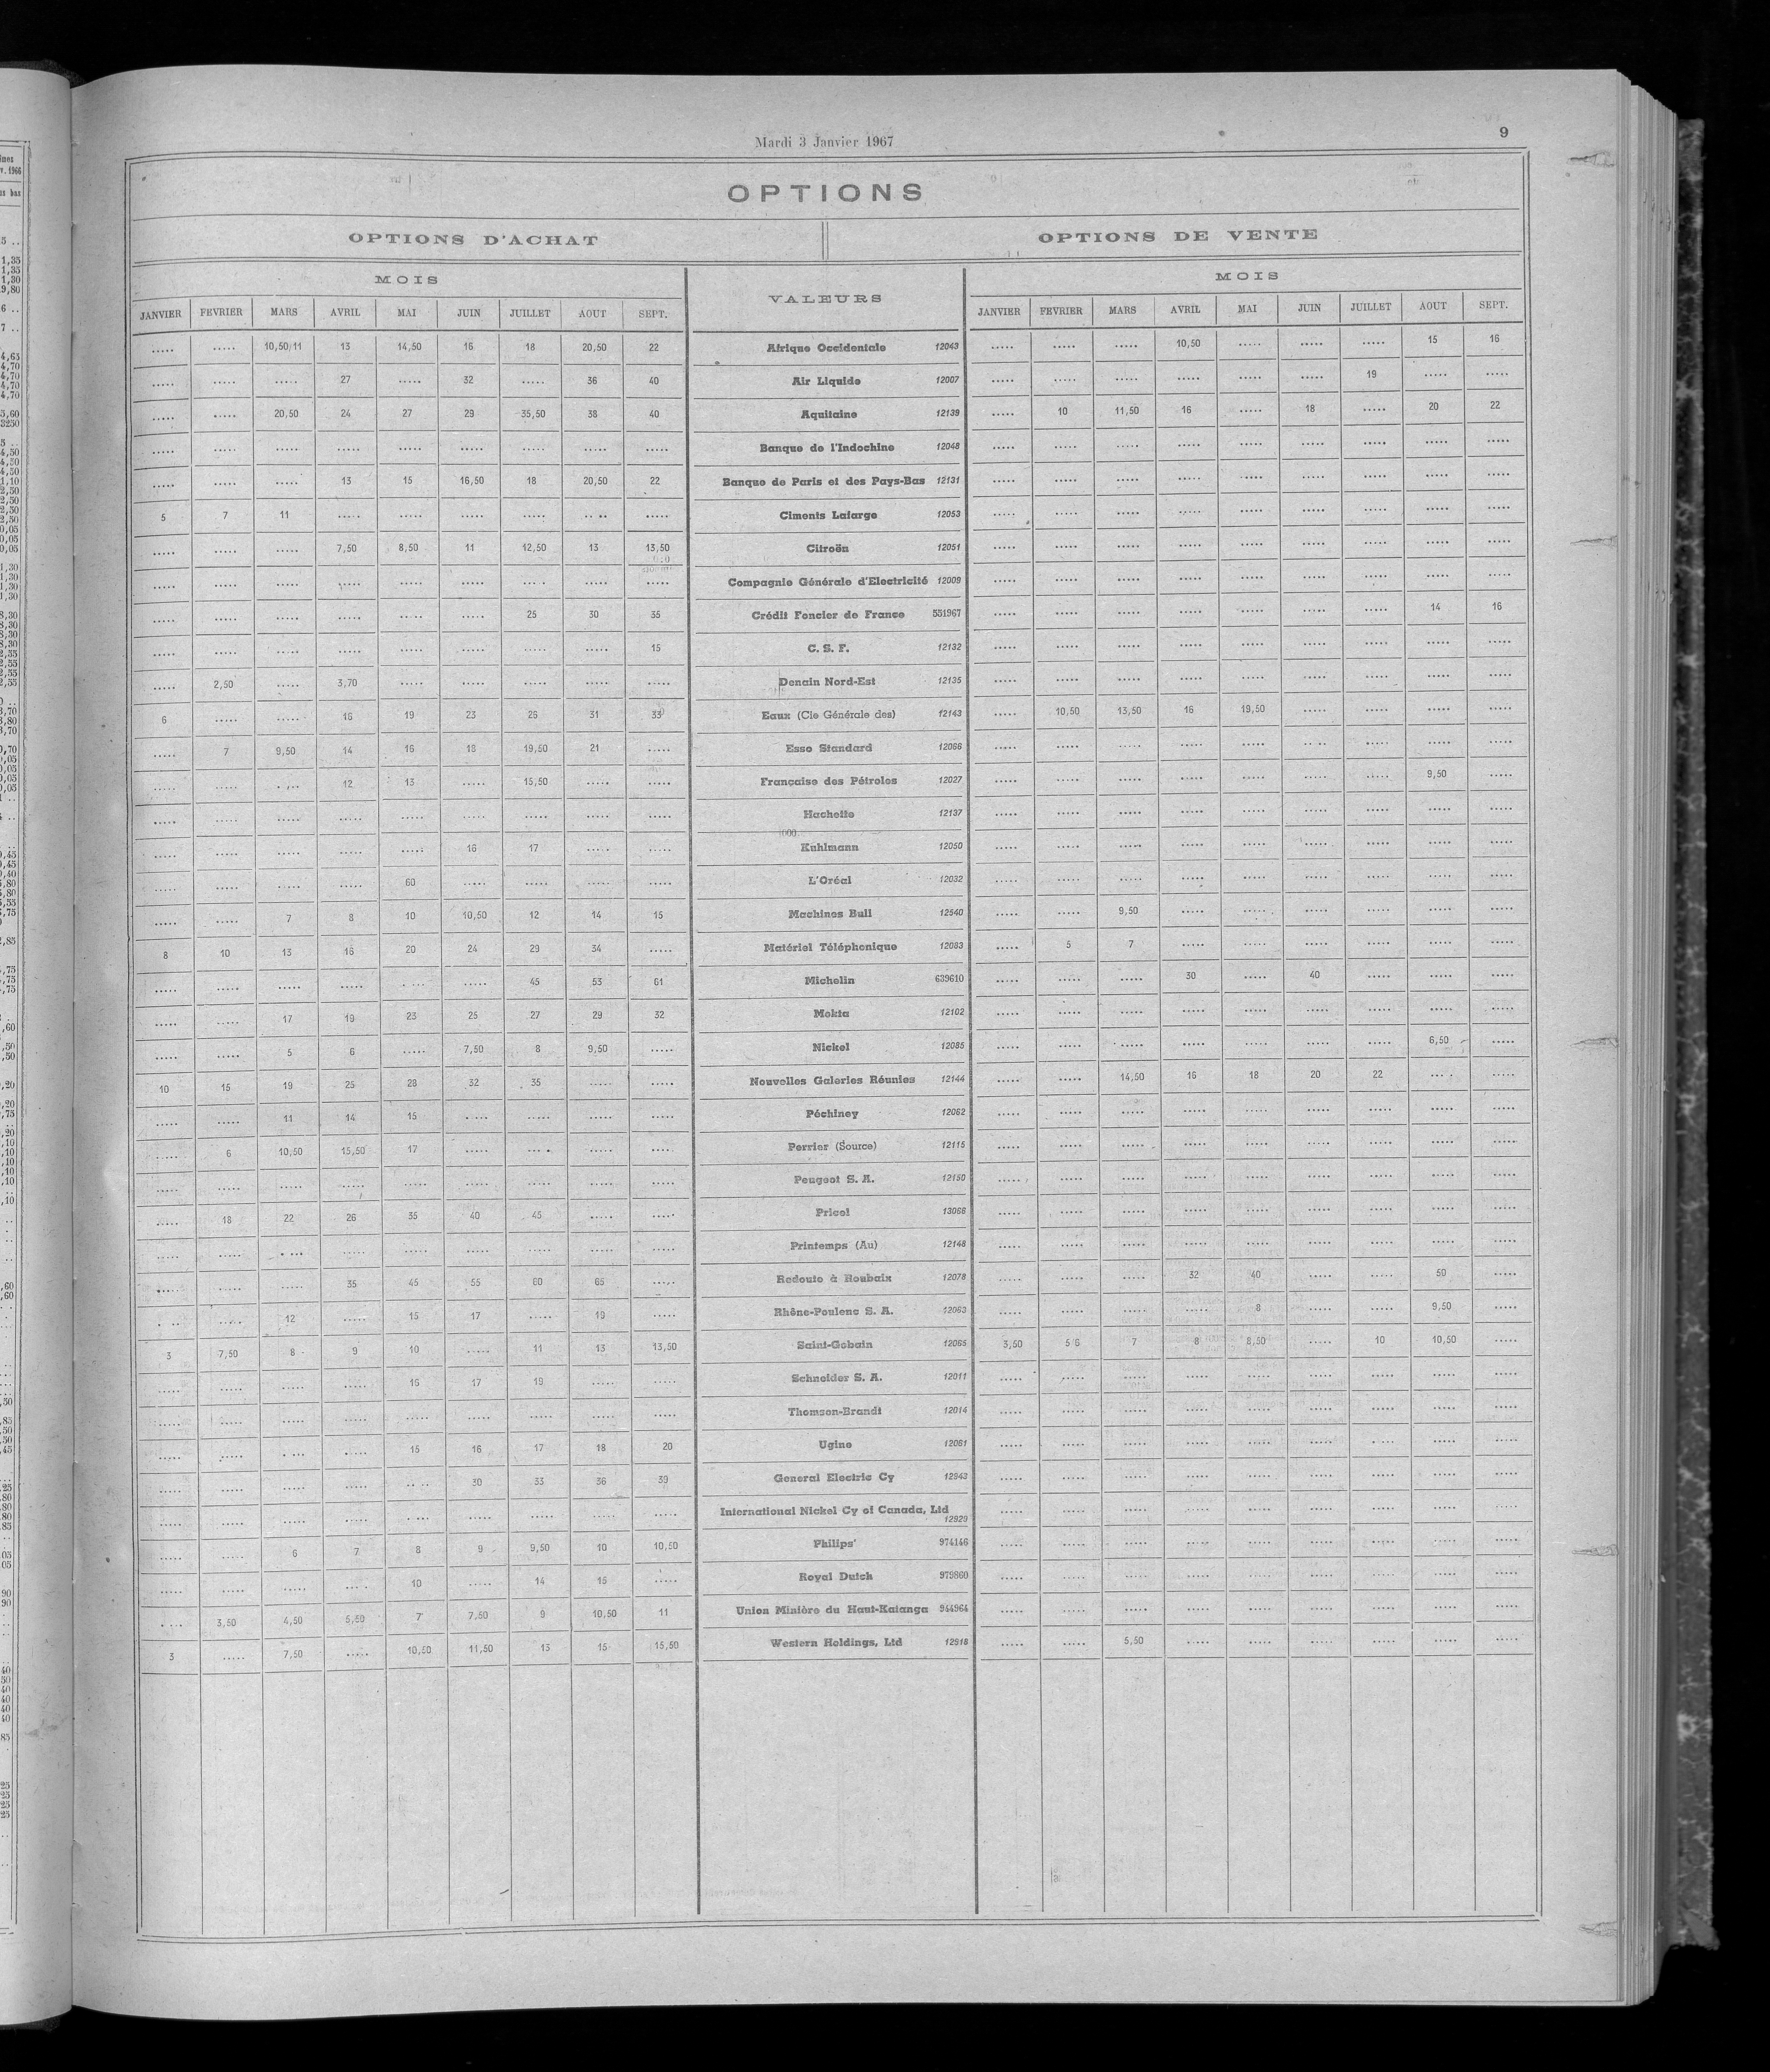 Mardi 3 Janvier 1967
9
OPTIONS
OPTIONS D'ACHAT OPTIONS DE VENTE
MOIS VALEURS MOIS
JANVIER FEVRIER MARS AVRIL MAI JUIN JUILLET AOUT SEPT. JANVIER FEVRIER MARS AVRIL MAI JUIN JUILLET AOUT SEPT.
..... ..... 10,50/11 13 14,50 16 18 20,50 22 Afrique Occidentale 12043 ..... ..... ..... 10,50 ..... ..... ..... 15 16
..... ..... ..... 27 ..... 32 ..... 36 40 Air Liquide 12007 ..... ..... ..... ..... ..... ..... 19 ..... .....
..... ..... 20,50 24 27 29 35,50 38 40 Aquitaine 12139 ..... 10 11,50 16 ..... 18 ..... 20 22
..... ..... ..... ..... ..... ..... ..... ..... ..... Banque de l'Indochine 12048 ..... ..... ..... ..... ..... ..... ..... ..... .....
..... ..... ..... 13 15 16,50 18 20,50 22 Banque de Paris et des Pays-Bas 12131 ..... ..... ..... ..... ..... ..... ..... ..... .....
5 7 11 ..... ..... ..... ..... ..... ..... Ciments Lafarge 12053 ..... ..... ..... ..... ..... ..... ..... ..... .....
..... ..... ..... 7,50 8,50 11 12,50 13 13,50 Citroën 12051 ..... ..... ..... ..... ..... ..... ..... ..... .....
..... ..... ..... ..... ..... ..... ..... ..... ..... Compagnie Générale d'Electricité 12009 ..... ..... ..... ..... ..... ..... ..... ..... .....
..... ..... ..... ..... ..... ..... 25 30 35 Crédit Foncier de France 551967 ..... ..... ..... ..... ..... ..... ..... 14 16
..... ..... ..... ..... ..... ..... ..... ..... 15 C. S. F. 12132 ..... ..... ..... ..... ..... ..... ..... ..... .....
..... 2,50 ..... 3,70 ..... ..... ..... ..... ..... Denain Nord-Est 12135 ..... ..... ..... ..... ..... ..... ..... ..... .....
6 ..... ..... 16 19 23 26 31 33 Eaux (Cie Générale des) 12143 ..... 10,50 13,50 16 19,50 ..... ..... ..... .....
..... 7 9,50 14 16 18 19,50 21 ..... Esso Standard 12066 ..... ..... ..... ..... ..... ..... ..... ..... .....
..... ..... ..... 12 13 ..... 15,50 ..... ..... Française des Pétroles 12027 ..... ..... ..... ..... ..... ..... ..... 9,50 .....
..... ..... ..... ..... ..... ..... ..... ..... ..... Hachette 12137 ..... ..... ..... ..... ..... ..... ..... ..... .....
..... ..... ..... ..... ..... 16 17 ..... ..... Kuhlmann 12050 ..... ..... ..... ..... ..... ..... ..... ..... .....
..... ..... ..... ..... 60 ..... ..... ..... ..... L'Oréal 12032 ..... ..... ..... ..... ..... ..... ..... ..... .....
..... ..... 7 8 10 10,50 12 14 15 Machines Bull 12540 ..... ..... 9,50 ..... ..... ..... ..... ..... .....
8 10 13 16 20 24 29 34 ..... Matériel Téléphonique 12083 ..... 5 7 ..... ..... ..... ..... ..... .....
..... ..... ..... ..... ..... ..... 45 53 61 Michelin 639610 ..... ..... ..... 30 ..... 40 ..... ..... .....
..... ..... 17 19 23 25 27 29 32 Mokta 12102 ..... ..... ..... ..... ..... ..... ..... ..... .....
..... ..... 5 6 ..... 7,50 8 9,50 ..... Nickel 12085 ..... ..... ..... ..... ..... ..... ..... 6,50 .....
10 15 19 25 28 32 35 ..... ..... Nouvelles Galeries Réunies 12144 ..... ..... 14,50 16 18 20 22 ..... .....
..... ..... 11 14 15 ..... ..... ..... ..... Péchiney 12062 ..... ..... ..... ..... ..... ..... ..... ..... .....
..... 6 10,50 15,50 17 ..... ..... ..... ..... Perrier (Source) 12115 ..... ..... ..... ..... ..... ..... ..... ..... .....
..... ..... ..... ..... ..... ..... ..... ..... ..... Peugeot S. A. 12150 ..... ..... ..... ..... ..... ..... ..... ..... .....
..... 18 22 26 35 40 45 ..... ..... Pricel 13066 ..... ..... ..... ..... ..... ..... ..... ..... .....
..... ..... ..... ..... ..... ..... ..... ..... ..... Printemps (Au) 12148 ..... ..... ..... ..... ..... ..... ..... ..... .....
..... ..... ..... 35 45 55 60 65 ..... Redoute à Roubaix 12078 ..... ..... ..... 32 40 ..... ..... 50 .....
..... ..... 12 ..... 15 17 ..... 19 ..... Rhône-Poulenc S. A. 12063 ..... ..... ..... ..... 8 ..... ..... 9,50 .....
3 7,50 8 9 10 ..... 11 13 13,50 Saint-Gobain 12065 3,50 5 6 7 8 8,50 ..... 10 10,50 .....
..... ..... ..... ..... 16 17 19 ..... ..... Schneider S. A. 12011 ..... ..... ..... ..... ..... ..... ..... ..... .....
..... ..... ..... ..... ..... ..... ..... ..... ..... Thomson-Brandt 12014 ..... ..... ..... ..... ..... ..... ..... ..... .....
..... ..... ..... ..... 15 16 17 18 20 Ugine 12061 ..... ..... ..... ..... ..... ..... ..... ..... .....
..... ..... ..... ..... ..... 30 33 36 39 General Electric Cy 12943 ..... ..... ..... ..... ..... ..... ..... ..... .....
..... ..... ..... ..... ..... ..... ..... ..... ..... International Nickel Cy of Canada, Ltd ..... ..... ..... ..... ..... ..... ..... ..... .....
12929
..... ..... 6 7 8 9 9,50 10 10,50 Philips' 974146 ..... ..... ..... ..... ..... ..... ..... ..... .....
..... ..... ..... ..... 10 ..... 14 15 ..... Royal Dutch 979860 ..... ..... ..... ..... ..... ..... ..... ..... .....
..... 3,50 4,50 5,50 7 7,50 9 10,50 11 Union Minière du Haut-Katanga 944964 ..... ..... ..... ..... ..... ..... ..... ..... .....
3 ..... 7,50 ..... 10,50 11,50 13 15 15,50 Western Holdings, Ltd 12918 ..... ..... 5,50 ..... ..... ..... ..... ..... .....